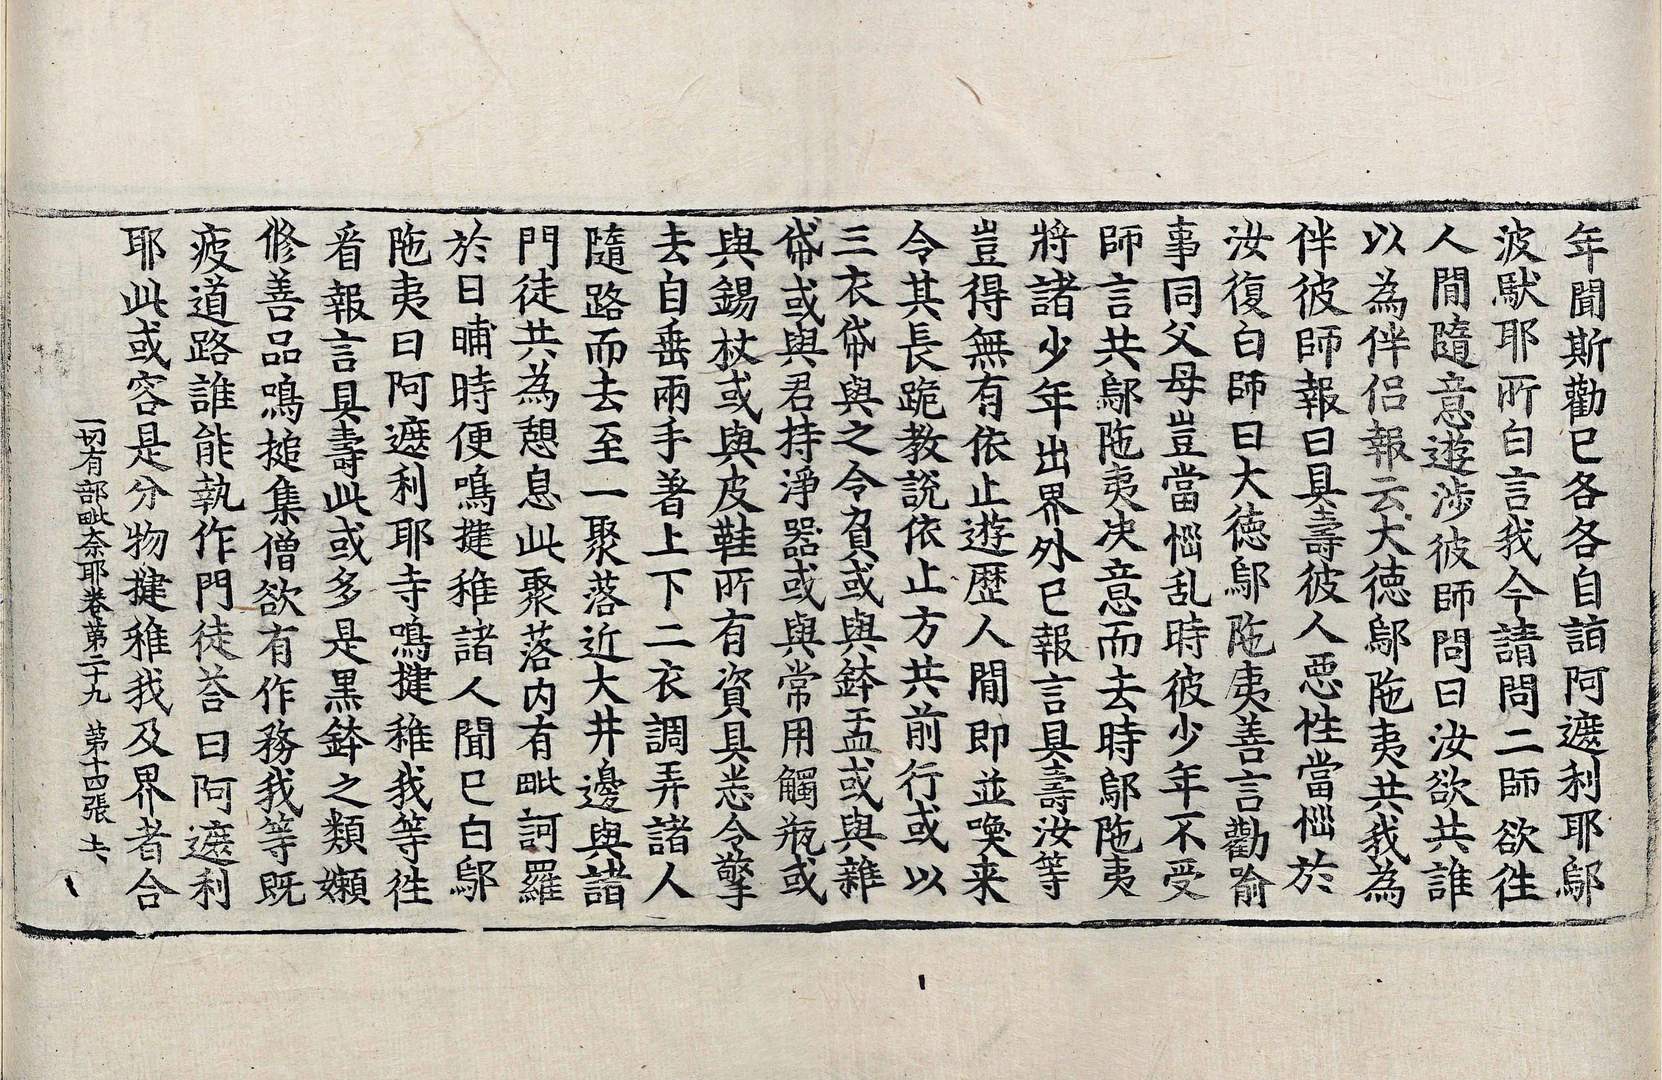 年聞斯勸已各各自詣阿遮利耶鄔
波馱耶所白言我今請問二師欲徃
人間隨意遊涉彼師問曰汝欲共誰
以為伴侶報云大徳鄔陁夷共我為
伴彼師報曰具壽彼人惡性當惱於
汝復白師曰大徳鄔陁夷善言勸喻
事同父母豈當惱乱時彼少年不受
師言共鄔陁夷决意而去時鄔陁夷
將諸少年出界外已報言具壽汝等
豈得無有依止遊歷人間即並喚来
令其長跪教說依止方共前行或以
三衣帒與之令負或與鉢盂或與雜
帒或與君持淨器或與常用觸瓶或
與錫杖或與皮鞋所有資具悉令擎
去自垂兩手著上下二衣調弄諸人
隨路而去至一聚落近大井邊與諸
門徒共為憩息此聚落内有毗訶羅
於日晡時便鳴揵稚諸人聞已白鄔
陁夷曰阿遮利耶寺鳴揵稚我等徃
看報言具壽此或多是黑鉢之類嬾
修善品鳴搥集僧欲有作務我等既
疲道路誰能執作門徒荅曰阿遮利
耶此或容是分物揵稚我及界者合
一切有部毗奈耶卷第二十九　第十四張　去